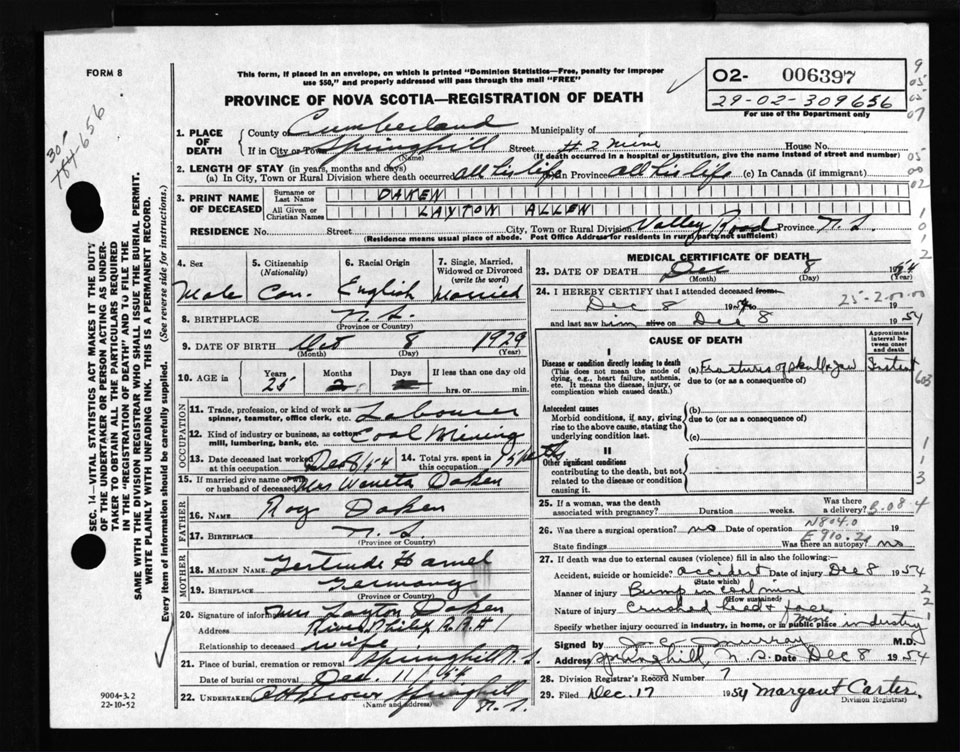 FORM 8
This form, if placed in an envelope, on which is printed "Dominion Statistics—Free, penalty for improper
use $50," and properly addressed will pass through the mail "FREE"
O2- 006397
29-02-309656
For use of the Department only
PROVINCE OF NOVA SCOTIA—REGISTRATION OF DEATH
1. PLACE OF DEATH
County of Cumberland Municipality of
If in City or Town Springhill Street #2 Mine House No.
(Name) (If death occurred in a hospital or institution, give the name instead of street and number)
2. LENGTH OF STAY (in years, months and days)
(a) In City, Town or Rural Division where death occurred all his life (b) in Province all his life (c) In Canada (if immigrant)
3. PRINT NAME OF DECEASED
Surname or Last Name DAKEN
All Given or Christian Names LAYTON ALLEN
RESIDENCE No. Street City, Town or Rural Division Valley Road Province N.S.
(Residence means usual place of abode. Post Office Address for residents in rural parts not sufficient)
4. Sex Male
5. Citizenship (Nationality) Can.
6. Racial Origin English
7. Single, Married, Widowed or Divorced (write the word) Married
8. BIRTHPLACE N.S.
(Province or Country)
9. DATE OF BIRTH 8 1929
(Month) (Day) (Year)
10. AGE in Years 25 Months 2 Days If less than one day old hrs. or min.
OCCUPATION
11. Trade, profession, or kind of work as spinner, teamster, office clerk, etc. Labourer
12. Kind of industry or business, as cotton mill, lumbering, bank, etc. Coal Mining
13. Date deceased last worked at this occupation Dec 8/54 14. Total yrs. spent in this occupation
15. If married give name of wife or husband of deceased Mrs Weneta Daken
FATHER
16. Name Roy Daken
17. Birthplace N.S
(Province or Country)
MOTHER
18. Maiden Name Gertrude Hamel
19. Birthplace Germany
(Province or Country)
20. Signature of informant Mrs Layton Daken
Address River Philip R.R.#1
Relationship to deceased wife
21. Place of burial, cremation or removal Springhill N.S.
Date of burial or removal Dec. 11/54
22. Undertaker A H Brown Springhill
(Name and Address) N.S.
MEDICAL CERTIFICATE OF DEATH
23. DATE OF DEATH Dec 8 1954
(Month) (Day)
24. I HEREBY CERTIFY that I attended deceased from
Dec 8 1954 to 19
and last saw him alive on Dec 8 1954
CAUSE OF DEATH
Approximate interval between onset and death
I
Disease or condition directly leading to death
(This does not mean the mode of dying, e.g., heart failure, asthenia, etc. It means the disease, injury, or complication which caused death.)
(a) Fractures of skull & jaw Instant
due to (or as a consequence of)
Antecedent causes
Morbid conditions, if any, giving rise to the above cause, stating the underlying condition last.
(b)
due to (or as a consequence of)
(c)
II
Other significant conditions
contributing to the death, but not related to the disease or condition causing it.
25. If a woman, was the death associated with pregnancy? Duration weeks. Was there a delivery?
26. Was there a surgical operation? no Date of operation 19
N804.0
E910.2
State findings Was there an autopsy? no
27. If death was due to external causes (violence) fill in also the following:—
Accident, suicide or homicide? accident Date of injury Dec 8 1954
(State which)
Manner of injury Bump in coal mine
(How sustained)
Nature of injury Crushed head & face
Specify whether injury occurred in industry, in home, or in public place industry
mine
Signed by J. E. Murray M.D.
Address Springhill, N.S. Date Dec 8 1954
28. Division Registrar's Record Number 7
29. Filed Dec. 17 1954 Margaret Carter.
Division Registrar)
SEC. 14—VITAL STATISTICS ACT MAKES IT THE DUTY
OF THE UNDERTAKER OR PERSON ACTING AS UNDERTAKER
TO OBTAIN ALL THE PARTICULARS REQUIRED
IN THE "REGISTRATION OF DEATH" AND TO FILE THE
SAME WITH THE DIVISION REGISTRAR WHO SHALL ISSUE THE BURIAL PERMIT.
WRITE PLAINLY WITH UNFADING INK. THIS IS A PERMANENT RECORD.
Every item of information should be carefully supplied. (See reverse side for instructions.)
9004-3.2
22-10-52